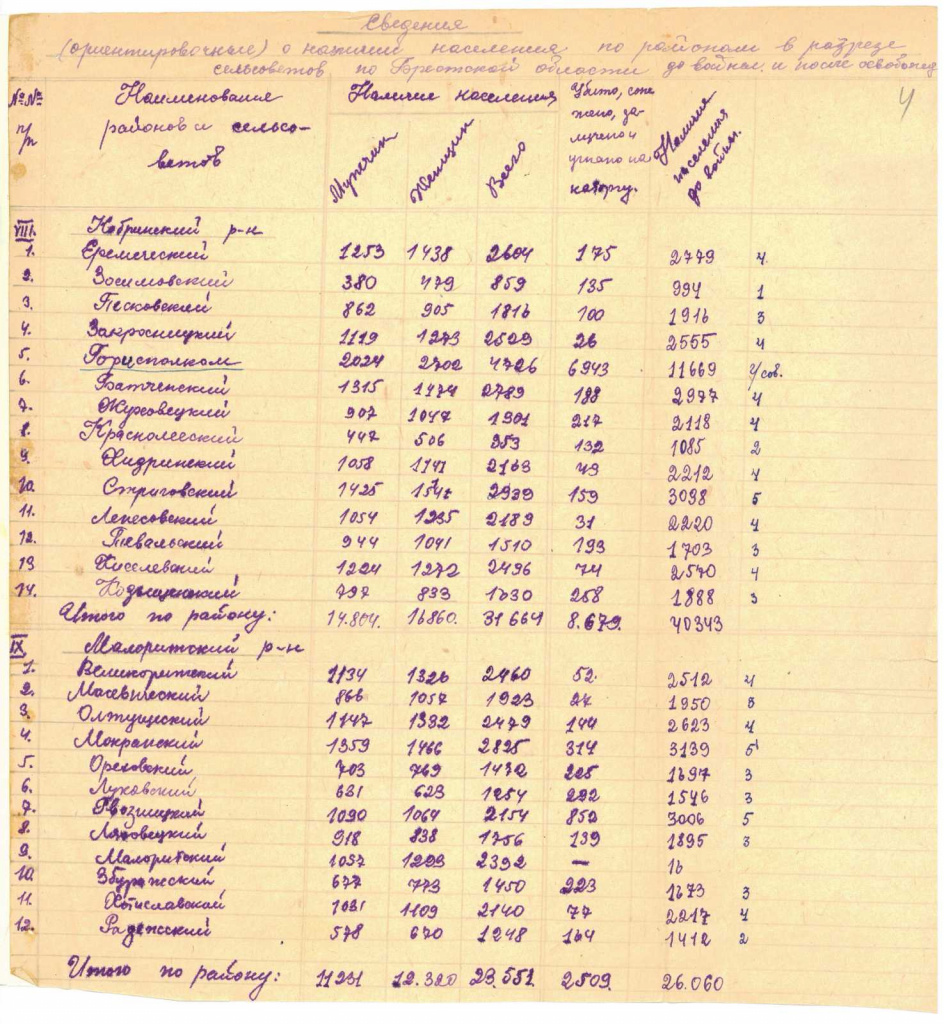 Сведения
(ориентировочные) о наличии населения по районам в разрезе
сельсоветов по Брестской области до войны и после освобожд
4
№№ п/п Наименования районов и сельсоветов Наличие населения Мужчин Женщин Всего Убито, сожжено, замучено и угнано на каторгу. Наличия населения до войны.
VIII. Кобринский р-н
1. Еремический 1253 1438 2604 175 2779 4
2. Зосимовский 380 479 859 135 994 1
3. Песковский 862 905 1816 100 1916 3
4. Закросницкий 1119 1273 2529 26 2555 4
5. Горисполком 2024 2702 4726 6943 11669
6. Батченский 1315 1474 2789 188 2977 4
7. Жуховецкий 907 1047 1901 217 2118 4
8. 447 506 953 132 1085 2
9. Хидринский 1058 1141 2163 49 2212 4
10. Стриговский 1425 2939 159 3098 5
11. Лепесовский 1054 1235 2189 31 2220 4
12. Тевальский 944 1041 1510 193 1703 3
13 Киселевский 1224 1272 2496 74 2570 4
14. 797 833 1630 258 1888 3
Итого по району: 14.804. 16860. 31664 8.679. 40343
IX Малоритский р-н
1. Великоритский 1134 1326 2460 52. 2512 4
2. Масевический 866 1057 1923 27 1950 3
3. Олтушский 1147 1332 2479 144 2623 4
4. Мокранский 1359 1466 2825 314 3139 5
5. Ореховский 703 769 1472 225 1697 3
6. Луковский 631 623 1254 292 1546 3
7. Гвозницкий 1090 1064 2154 852 3006 5
8. Ляховецкий 918 838 1756 139 1895 3
9. Малоритский 1097 1293 2392 — 16
10. Збуражский 677 773 1450 223 1673 3
11. Хотиславский 1031 1109 2140 77 2217 4
12. Радежский 578 670 1248 164 1412 2
Итого по району: 11231 12.320 23.551 2509. 26.060